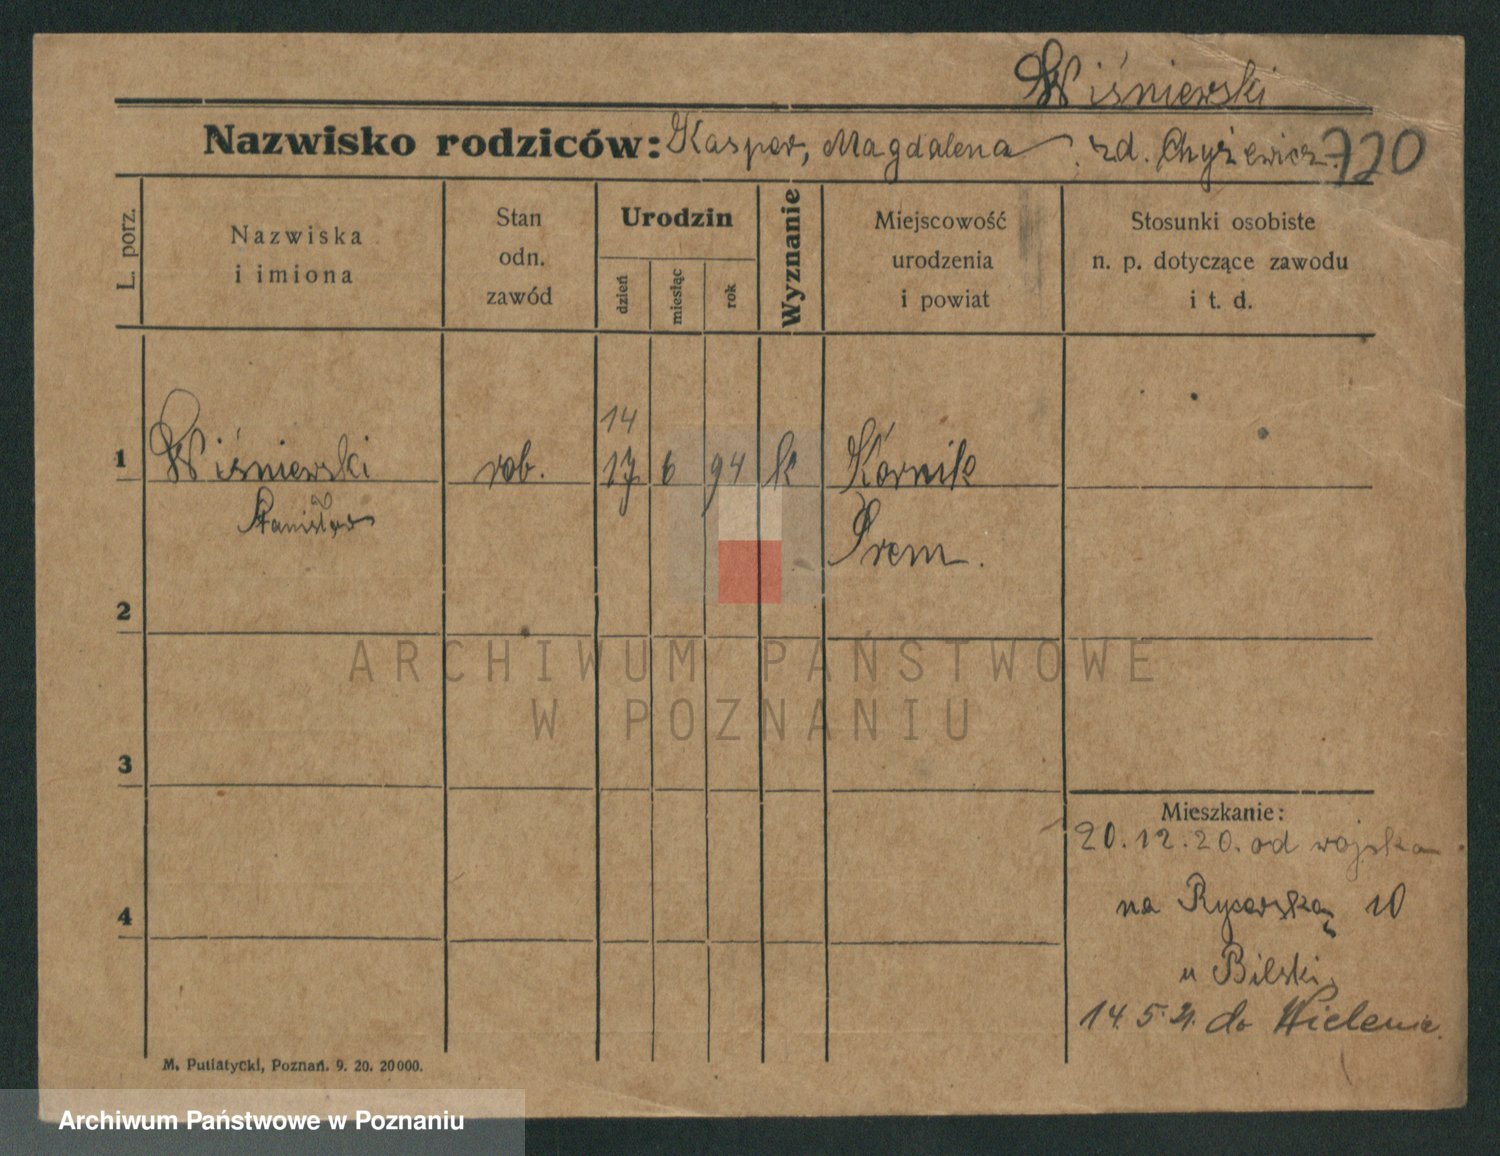 Wiśniewski
Nazwisko rodziców: Kasper, Magdalena zd. Chyżewicz. 720
L. porz.
Nazwiska
i imiona
Stan
odn.
zawód
Urodzin
dzień
miesiąc
rok
Wyznanie
Miejscowość
urodzenia
i powiat
Stosunki osobiste
n. p. dotyczące zawodu
i t. d.
14
1 Wiśniewski rob. 17 6 94 k Kórnik
Stanisław Śrem.
2
ARCHIWUM PAŃSTWOWE
W POZNANIU
3
Mieszkanie:
20.12.20. od wojska
4 na Rycerską 10
u Bilski
14.5.21. do
M. Putiatycki, Poznań. 9. 20. 20000.
Archiwum Państwowe w Poznaniu